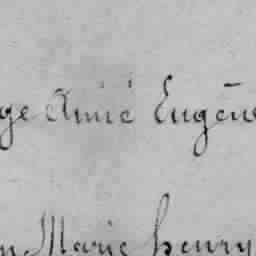 ge Aimé Eugène
n Marie henry